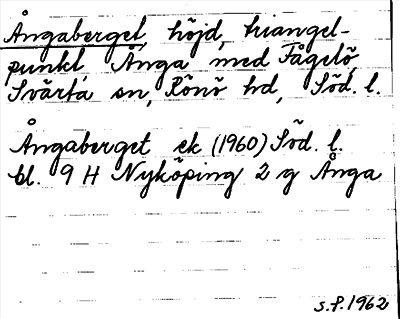 Ångaberget, höjd, triangel-
punkt, Ånga med Fågelö,
Svärta sn, Rönö hd, Söd. l.
Ångaberget ek (1960) Söd. l.
bl. 9 H Nyköping 2 g Ånga
S.P. 1962